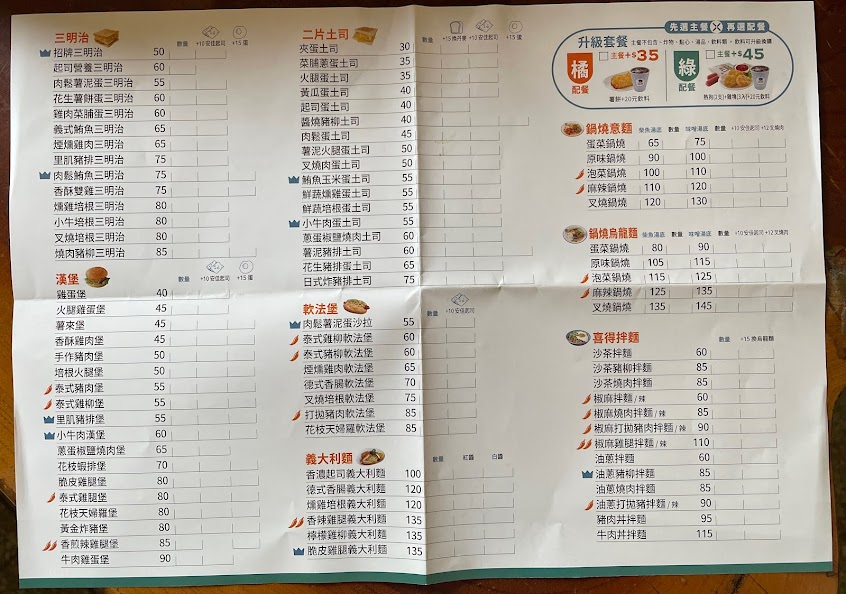 三明治 數量 +10 安佳起司 +15 蛋
招牌三明治 50
起司營養三明治 60
肉鬆薯泥蛋三明治 55
花生薯餅蛋三明治 60
雞肉菜脯蛋三明治 60
義式鮪魚三明治 65
煙燻雞肉三明治 65
里肌豬排三明治 75
肉鬆鮪魚三明治 75
香酥雙雞三明治 75
燻雞培根三明治 80
小牛培根三明治 80
叉燒培根三明治 80
燒肉豬柳三明治 85
漢堡 數量 +10 安佳起司 +15 蛋
雞蛋堡 40
火腿雞蛋堡 45
薯來堡 45
香酥雞肉堡 45
手作豬肉堡 50
培根火腿堡 50
泰式豬肉堡 55
泰式雞柳堡 55
里肌豬排堡 55
小牛肉漢堡 60
蔥蛋椒鹽燒肉堡 65
花枝蝦排堡 70
脆皮雞腿堡 80
泰式雞腿堡 80
花枝天婦羅堡 80
黃金炸豬堡 80
香煎辣雞腿堡 85
牛肉雞蛋堡 90
二片土司 數量 +15 換丹麥 +10 安佳起司 +15 蛋
夾蛋土司 30
菜脯蔥蛋土司 35
火腿蛋土司 35
黃瓜蛋土司 40
起司蛋土司 40
醬燒豬柳土司 40
肉鬆蛋土司 45
薯泥火腿蛋土司 50
叉燒肉蛋土司 50
鮪魚玉米蛋土司 55
鮮蔬燻雞蛋土司 55
鮮蔬培根蛋土司 55
小牛肉蛋土司 55
蔥蛋椒鹽燒肉土司 60
薯泥豬排土司 60
花生豬排蛋土司 65
日式炸豬排土司 75
軟法堡 數量 +10 安佳起司
肉鬆薯泥蛋沙拉 55
泰式雞柳軟法堡 60
泰式豬柳軟法堡 60
煙燻雞肉軟法堡 65
德式香腸軟法堡 70
叉燒培根軟法堡 75
打拋豬肉軟法堡 85
花枝天婦羅軟法堡 85
義大利麵 數量 紅醬 白醬
香濃起司義大利麵 100
德式香腸義大利麵 120
燻雞培根義大利麵 120
香辣雞腿義大利麵 135
檸檬雞柳義大利麵 135
脆皮雞腿義大利麵 135
先選主餐 再選配餐
升級套餐 主餐不包含、炸物、點心、湯品、飲料類。飲料可升級換購
橘 配餐 主餐+$35
薯餅+20元飲料
綠 配餐 主餐+$45
熱狗(2支)+雞塊(3入)+20元飲料
鍋燒意麵 柴魚湯底 數量 味噌湯底 數量 +10 安佳起司 +12 叉燒肉
蛋菜鍋燒 65 75
原味鍋燒 90 100
泡菜鍋燒 100 110
麻辣鍋燒 110 120
叉燒鍋燒 120 130
鍋燒烏龍麵 柴魚湯底 數量 味噌湯底 數量 +10 安佳起司 +12 叉燒肉
蛋菜鍋燒 80 90
原味鍋燒 105 115
泡菜鍋燒 115 125
麻辣鍋燒 125 135
叉燒鍋燒 135 145
喜得拌麵 數量 +15 換烏龍麵
沙茶拌麵 60
沙茶豬柳拌麵 85
沙茶燒肉拌麵 85
椒麻拌麵 / 辣 60
椒麻燒肉拌麵 / 辣 85
椒麻打拋豬肉拌麵 / 辣 90
椒麻雞腿拌麵 / 辣 110
油蔥拌麵 60
油蔥豬柳拌麵 85
油蔥燒肉拌麵 85
油蔥打拋豬肉拌麵 / 辣 90
豬肉丼拌麵 95
牛肉丼拌麵 115